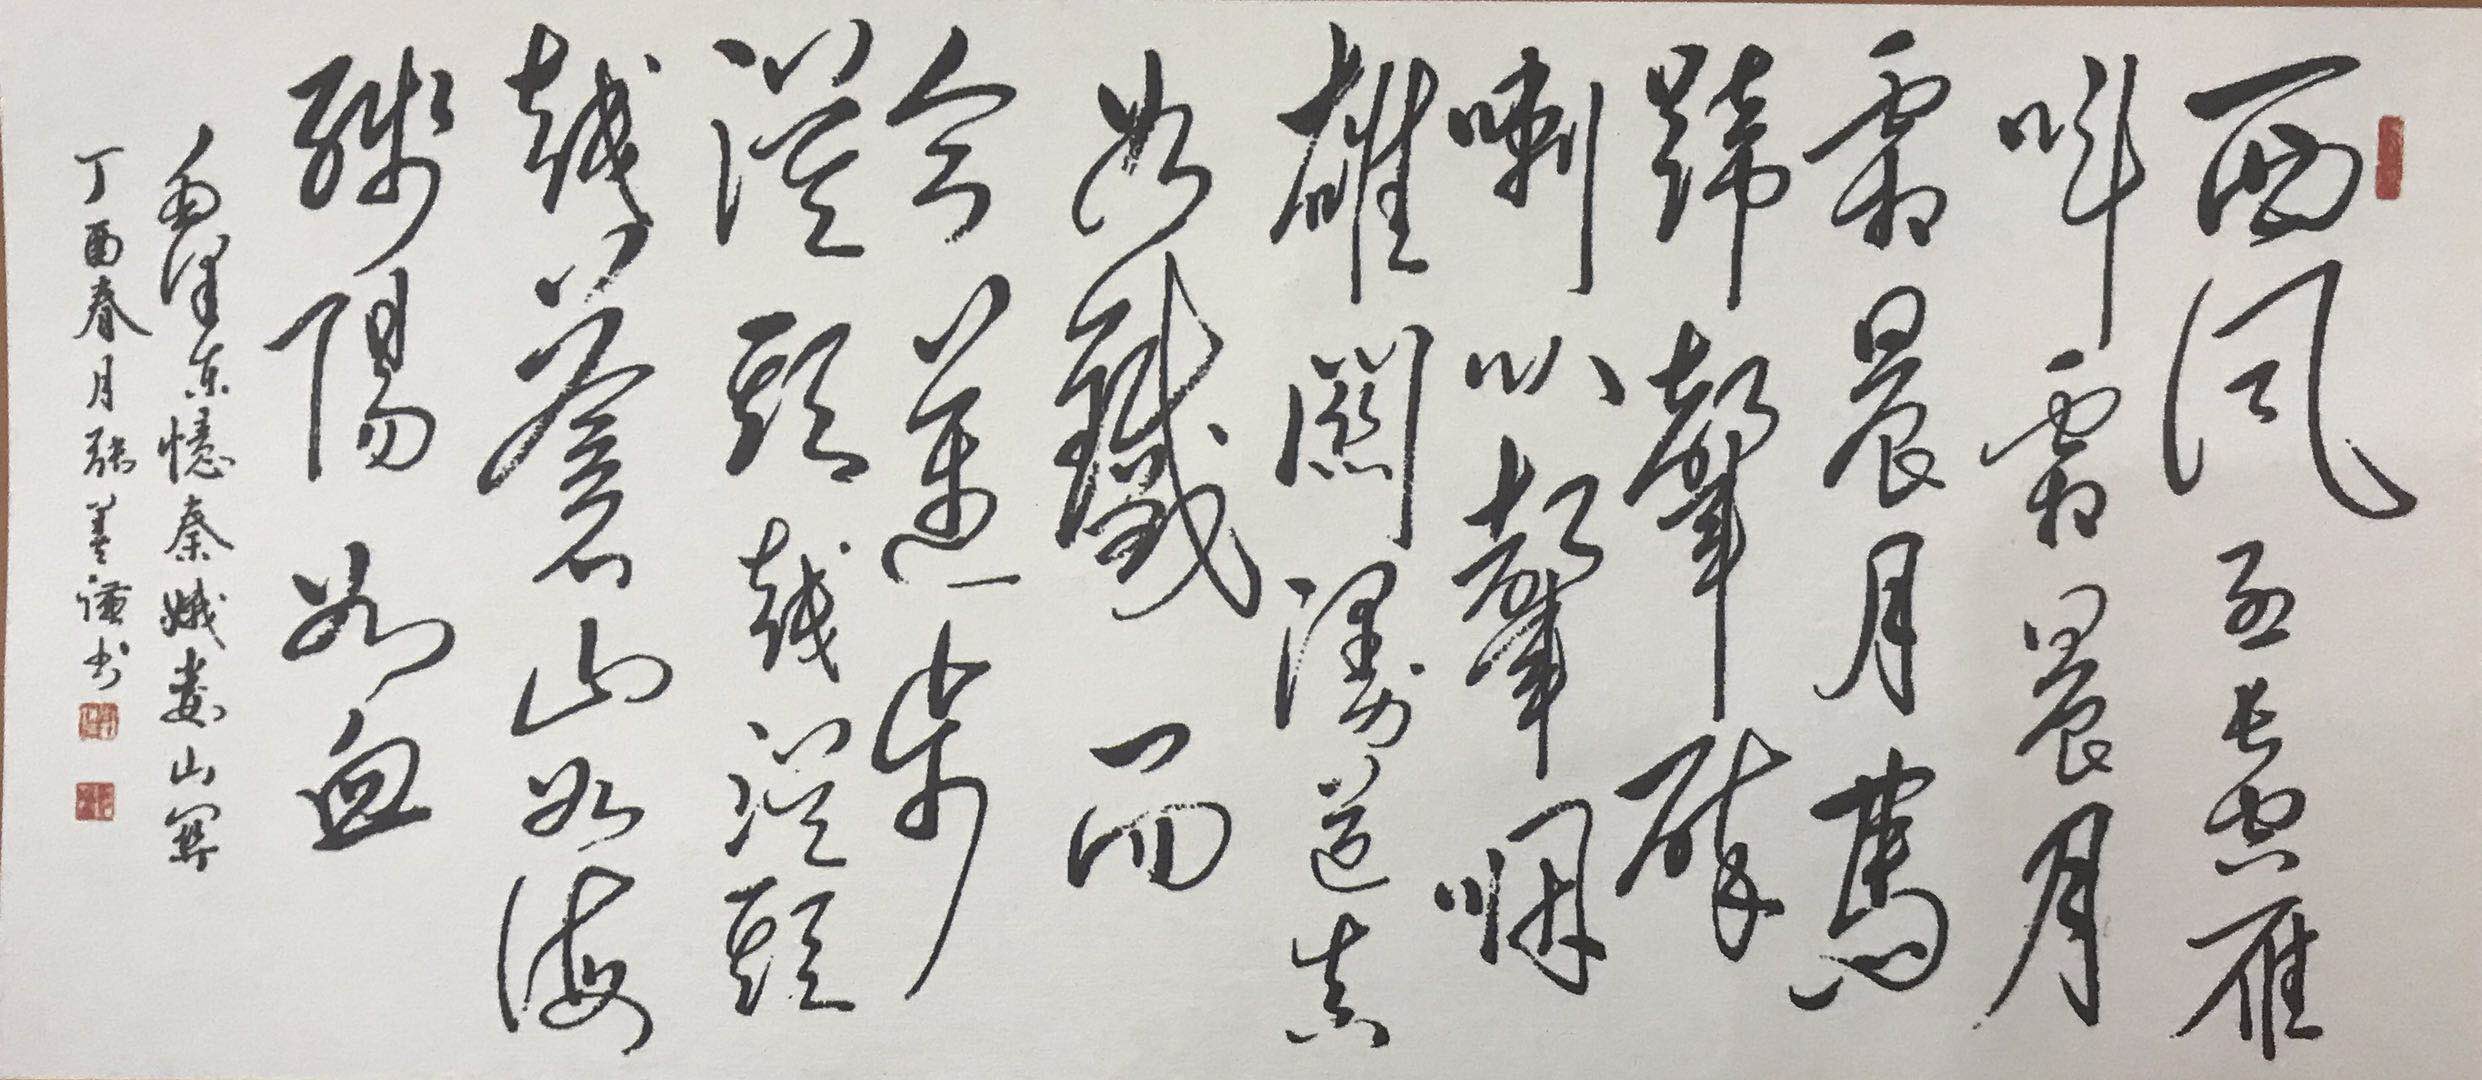 西风烈长空雁
叫霜晨月
霜晨月馬
蹄聲碎
喇叭聲咽
雄關漫道真
如鐵而
今邁步
從頭越從頭
越蒼山如海
殘陽如血
毛泽东憶秦娥娄山関
丁酉春月张善谦书